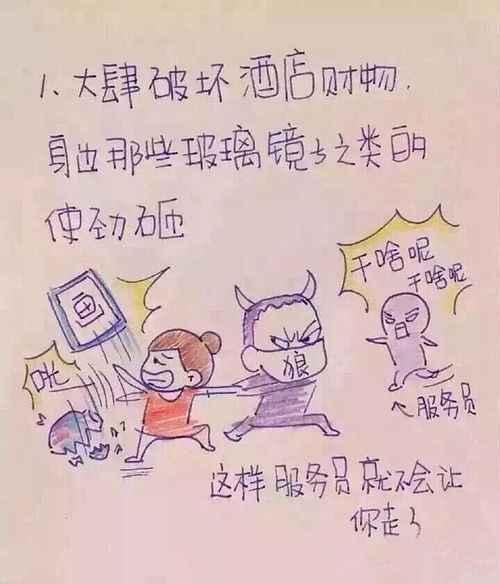 1、大肆破坏酒店财物.
身边那些玻璃镜子之类的
使劲砸
画
咣
狼
干啥呢
干啥呢
↖服务员
这样服务员就不会让
你走了